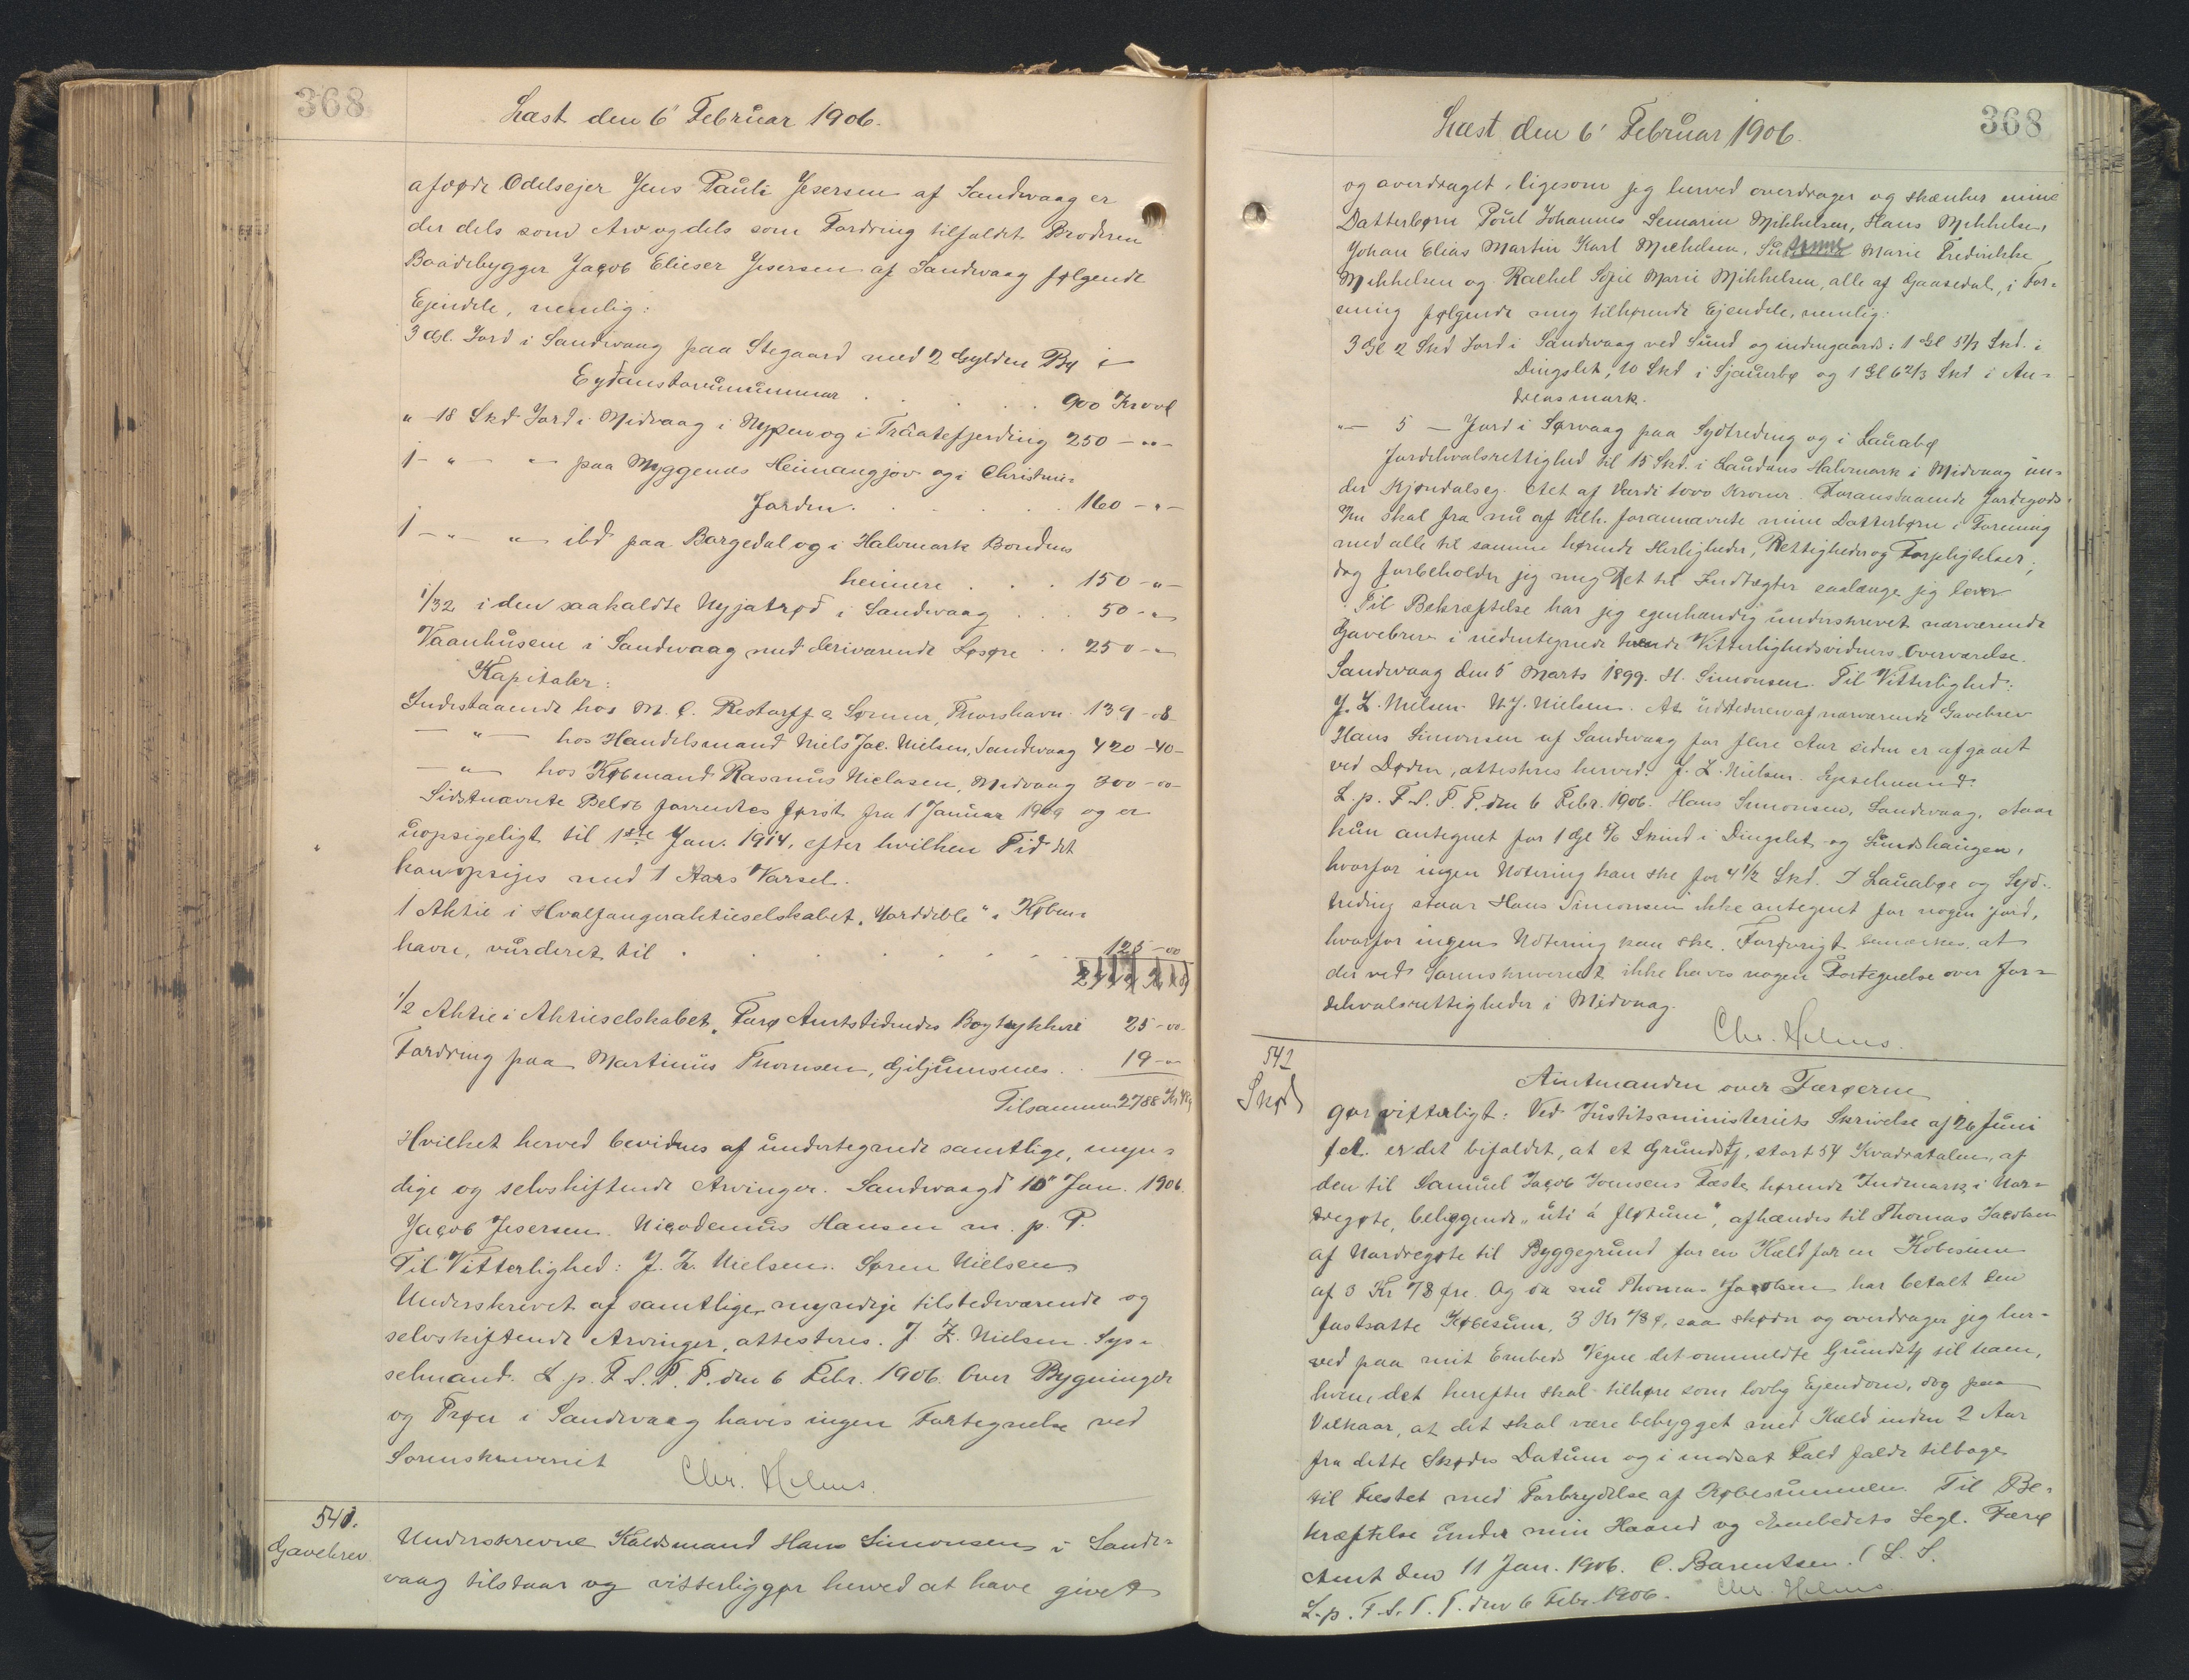 368
Læst den 6' Februar 1906.
afdøde Odelsejer Jens Pauli Jesersen af Sandvaag er
der dels som Arv og dels som Fordring tilfaldet Broderen
Baadebygger Jacob Elieser Jesersen af Sandvaag følgende
Ejendele, nemlig:
3 Gl. Jord i Sandvaag paa Stegaard med 2 Gylden By i
900 Kroner
" 18 Skd Jord i Midvaag i Nypen og i Traatefjerding 250 - " -
1 - " - " - paa Myggenæs Heimangjov og i Christine
Jorden . . . . . 160 - " -
1 - " - " - ibd paa Borgedal og i Halvmark Bondens
heimere . . . 150 - " -
1/32 i den saakaldte Nyjatrød i Sandvaag . . . 50 - "
Vaanhusene i Sandvaag med deriværende Løsøre . . 250 - "
Kapitaler:
Indestaaende hos M. C. Restorff & Sønner, Thorshavn 139 - 08
- " - hos Handelsmand Niels Jac. Nielsen, Sandvaag 420 - 40 -
- " - hos Købmand Rasmus Niclasen, Midvaag 300 - 00 -
Sidstnævnte Beløb forrentes først fra 1 Januar 1909 og er
uopsigeligt til 1ste Jan. 1914, efter hvilken Tid det
kan opsiges med 1 Aars Varsel.
1 Aktie i Hvalfangeraktieselskabet "Norddeble" i Køben-
havn, vurderet til . . . . . . . 125 - 00
1/2 Aktie i Aktieselskabet "Færø Amtstidendes Bogtrykkeri 25 - 00
Fordring paa Martinus Thomsen, Giljumsnes . . 19 - "
Tilsammen 2788 Kr 48 Ø
Hvilket herved bevidnes af undertegnede samtlige, myn-
dige og selvskiftende Arvinger. Sandvaag d 10" Jan. 1906.
Jacob Jesersen. Nicodemus Hansen m. p. P.
Til Vitterlighed: J. Z. Nielsen. Søren Nielsen
Underskrevet af samtlige, myndige tilstedeværende og
selvskiftende Arvinger, attesteres. J. Z. Nielsen. Sys-
selmand. L. p. F. S. T. P. den 6 Febr. 1906. Over Bygninger
og Trøer i Sandvaag haves ingen Fortegnelse ved
Sorenskriveriet Chr. Helms.
541.
Gavebrev.
Underskrevne Kaldsmand Hans Simonsen i Sand-
vaag tilstaar og vitterliggør herved at have givet
368
Læst den 6' Februar 1906.
og overdraget, ligesom jeg herved overdrager og skænker mine
Datterbørn Poul Johannes Semarin Mikkelsen, Hans Mikkelsen,
Johan Elias Martin Karl Mickelsen, Marie Fredrikke
Mikkelsen og Rachel Sofie Marie Mikkelsen, alle af Gaasedal, i For-
ening følgende mig tilhørende Ejendele, nemlig:
3 Gl 2 Skd Jord i Sandvaag ved Sund og indengaards: 1 Gl 5 1/3 Skd. i
Dingslet, 10 Skd i Sjauerbø og 1 Gl 6 2/3 Skd i An-
dreas mark.
" - 5 - Jord i Sørvaag paa Sydtreding og i Lauabø
Jordehvalsrettighed til 15 Skd. i Laudans Halvmark i Midvaag un-
der Kjøndalseg. Alt af Værdi 1000 Kroner. Foranstaaende Jordegods
skal fra nu af tilh. forannævnte mine Datterbørn i Forening
med alle til samme hørende Herligheder, Rettigheder og Forpligtelser;
dog forbeholder jeg mig Ret til Indtægter saalænge jeg lever
Til Bekræftelse har jeg egenhændig underskrevet nærværende
Gavebrev i nedentegnede tvende Vitterlighedsvidners Overværelse.
Sandvaag den 5 Marts 1899. H. Simonsen. Til Vitterlighed:
J. Z. Nielsen. N. J. Nielsen. At Udstederen af nærværende Gavebrev
Hans Simonsen af Sandvaag for flere Aar siden er afgaaet
ved Døden, attesteres herved. J. Z. Nielsen. Sysselmand.
L. p. F. S. T. P. den 6 Febr. 1906. Hans Simonsen, Sandvaag, staar
kun antegnet for 1 Gl Skind i Dingslet og Sundshaugen,
hvorfor ingen Notering kan ske for 4 1/2 Skd. I Lauabø og Syd-
treding staar Hans Simonsen ikke antegnet for nogen Jord,
hvorfor ingen Notering kan ske. Forøvrigt bemærkes, at
der ved Sorenskriveriet ikke haves nogen Fortegnelse over Jor-
dehvalsrettigheder i Midvaag.
Chr. Helms.
542
Skøde
Amtmanden over Færøerne
gør vitterligt: Ved Justitsministeriets Skrivelse af 26 Juni
f.A. er det bifaldet, at et Grundstk, stort 54 Kvadratalen, af
den til Samuel Jacob Joensens Fæste hørende Indmark i Nor-
dregøte, beliggende "uti á fløtum", afhændes til Thomas Jacobsen
af Nordregøte til Byggegrund for en Kæld for en Købesum
af 3 Kr 78 Øre. Og da nu Thomas Jacobsen har betalt den
fastsatte Købesum, 3 Kr 78 Ø, saa skøder og overdrager jeg her-
ved paa mit Embeds Vegne det ommeldte Grundstk til ham,
hvem det herefter skal tilhøre som lovlig Ejendom, dog paa
Vilkaar, at det skal være bebygget med Kæld inden 2 Aar
fra dette Skødes Datum og i modsat Fald falde tilbage
til Fæstet med Forbrydelse af Købesummen. Til Be-
kræftelse under min Haand og Embedets Segl. Færø
Amt den 11 Jan. 1906. C. Bærentsen. (L. S.
L. p. F. S. T. P. den 6 Febr 1906. Chr. Helms.